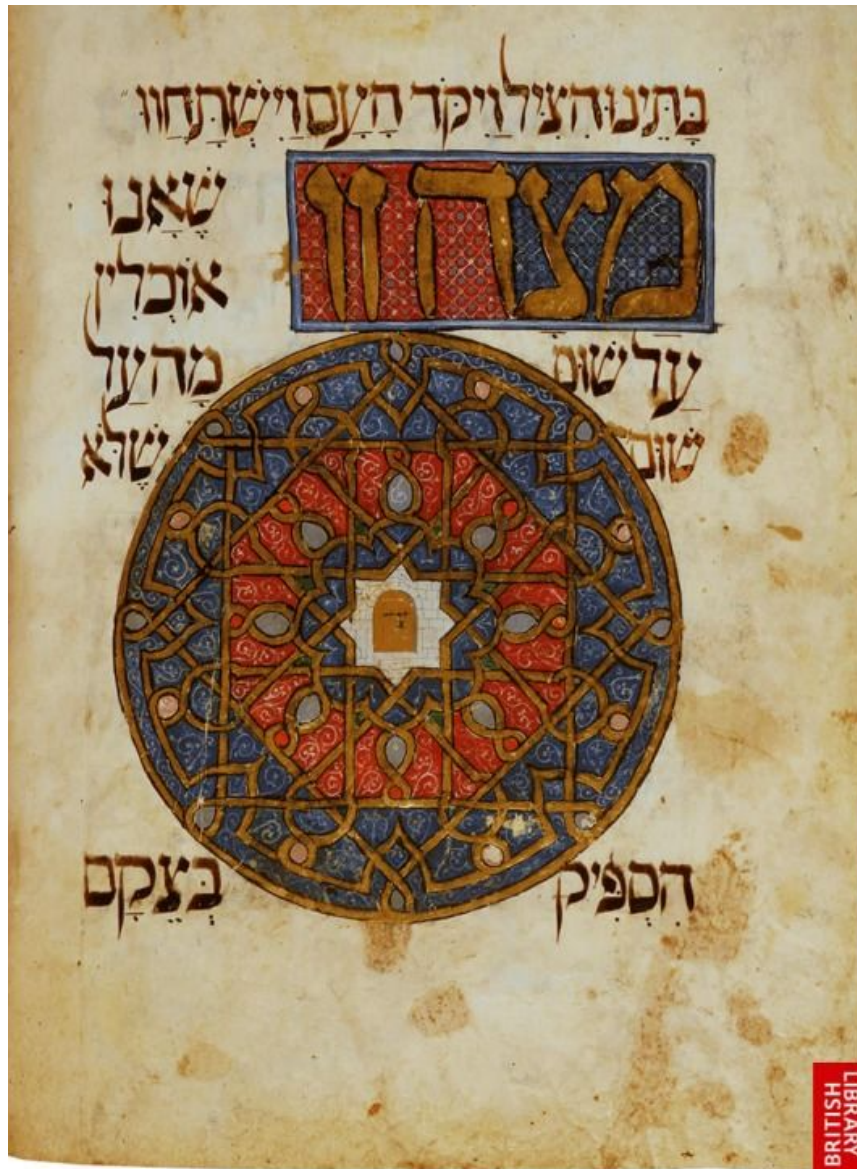 בָּתֵּינוּ הִצִּיל וַיִּקֹּד הָעָם וַיִּשְׁתַּחֲווּ
מצה זו שֶׁאָנוּ
אוֹכְלִין
עַל שׁוּם מָה עַל
שׁוּם שֶׁלֹּא
הִסְפִּיק בְּצֵקָם
BRITISH
LIBRARY